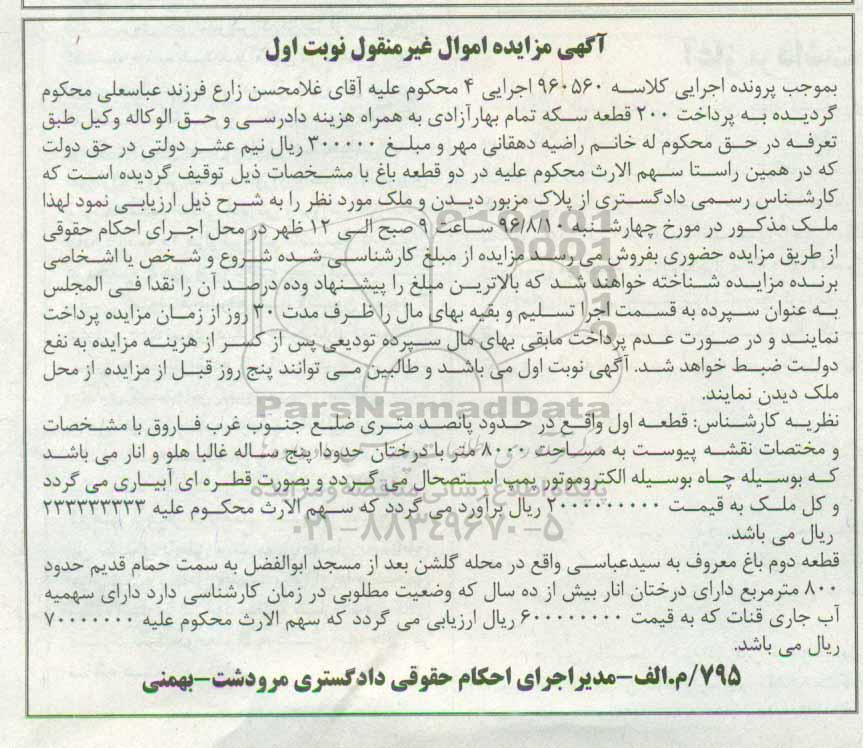 آگهی مزایده اموال غیرمنقول نوبت اول
بموجب پرونده اجرایی کلاسه ۹۶۰۵۶۰ اجرایی ۴ محکوم علیه آقای غلامحسن زارع فرزند عباسعلی محکوم
گردیده به پرداخت ۲۰۰ قطعه سکه تمام بهارآزادی به همراه هزینه دادرسی و حق الوکاله وکیل طبق
تعرفه در حق محکوم له خانم راضیه دهقانی مهر و مبلغ ۳۰۰۰۰۰ ریال نیم عشر دولتی در حق دولت
که در همین راستا سهم الارث محکوم علیه در دو قطعه باغ با مشخصات ذیل توقیف گردیده است که
کارشناس رسمی دادگستری از پلاک مزبور دیدن و ملک مورد نظر را به شرح ذیل ارزیابی نمود لهذا
ملک مذکور در مورخ چهارشنبه ۹۶/۸/۱۰ ساعت ۹ صبح الی ۱۲ ظهر در محل اجرای احکام حقوقی
از طریق مزایده حضوری بفروش می رسد مزایده از مبلغ کارشناسی شده شروع و شخص یا اشخاصی
برنده مزایده شناخته خواهند شد که بالاترین مبلغ را پیشنهاد وده درصد آن را نقدا فی المجلس
به عنوان سپرده به قسمت اجرا تسلیم و بقیه بهای مال را ظرف مدت ۳۰ روز از زمان مزایده پرداخت
نمایند و در صورت عدم پرداخت مابقی بهای مال سپرده تودیعی پس از کسر از هزینه مزایده به نفع
دولت ضبط خواهد شد. آگهی نوبت اول می باشد و طالبین می توانند پنج روز قبل از مزایده از محل
ملک دیدن نمایند.
ParsNamadData
نظریه کارشناس: قطعه اول واقع در حدود پانصد متری ضلع جنوب غرب فاروق با مشخصات
و مختصات نقشه پیوست به مساحت ۸۰۰۰ متر با درختان حدودا پنج ساله غالبا هلو و انار می باشد
که بوسیله چاه بوسیله الکتروموتور پمپ استصحال می گردد و بصورت قطره ای آبیاری می گردد
پایگاه اطلاع رسانی مناقصه و مزایده
و کل ملک به قیمت ۲۰۰۰۰۰۰۰۰۰ ریال براورد می گردد که سهم الارث محکوم علیه ۲۳۳۳۳۳۳۳۳
ریال می باشد.
۰۲۱-۸۸۳۴۹۶۷۰-۵
قطعه دوم باغ معروف به سیدعباسی واقع در محله گلشن بعد از مسجد ابوالفضل به سمت حمام قدیم حدود
۸۰۰ مترمربع دارای درختان انار بیش از ده سال که وضعیت مطلوبی در زمان کارشناسی دارد دارای سهمیه
آب جاری قنات که به قیمت ۶۰۰۰۰۰۰۰۰ ریال ارزیابی می گردد که سهم الارث محکوم علیه ۷۰۰۰۰۰۰۰
ریال می باشد.
۷۹۵/م.الف-مدیراجرای احکام حقوقی دادگستری مرودشت-بهمنی